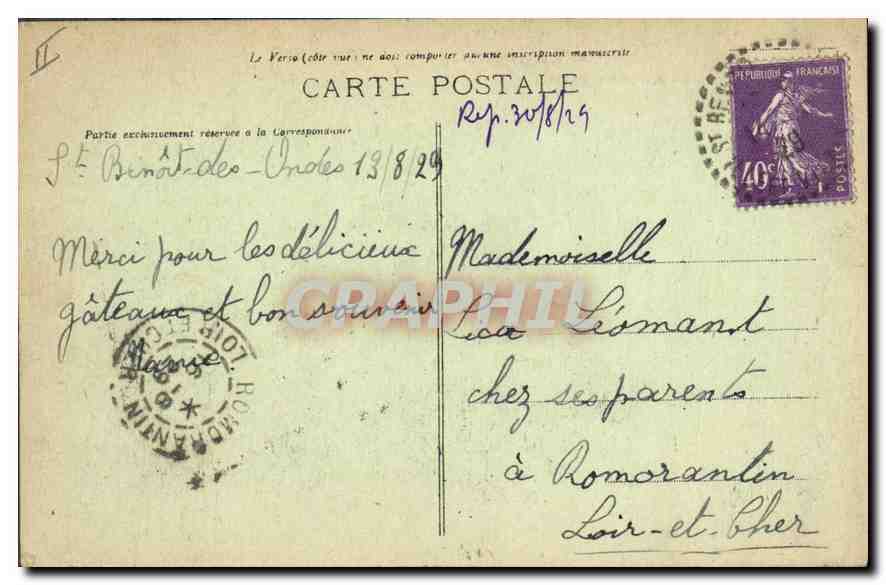 II
Le Verso (côté vue) ne doit comporter aucune inscription manuscrite
CARTE POSTALE
Partie exclusivement réservée à la Correspondance
Rep. 30/8/29
REPUBLIQUE FRANÇAISE
40c
POSTES
ST BEN
St Benôit-des-Ondes 19/8/29
Merci pour les délicieux
gâteaux et bon souvenir
Mademoiselle
Léomant
chez ses parents
à Romorantin
Loir-et-Cher
ROMORANTIN
LOIR ET CHER
CRAPHIL